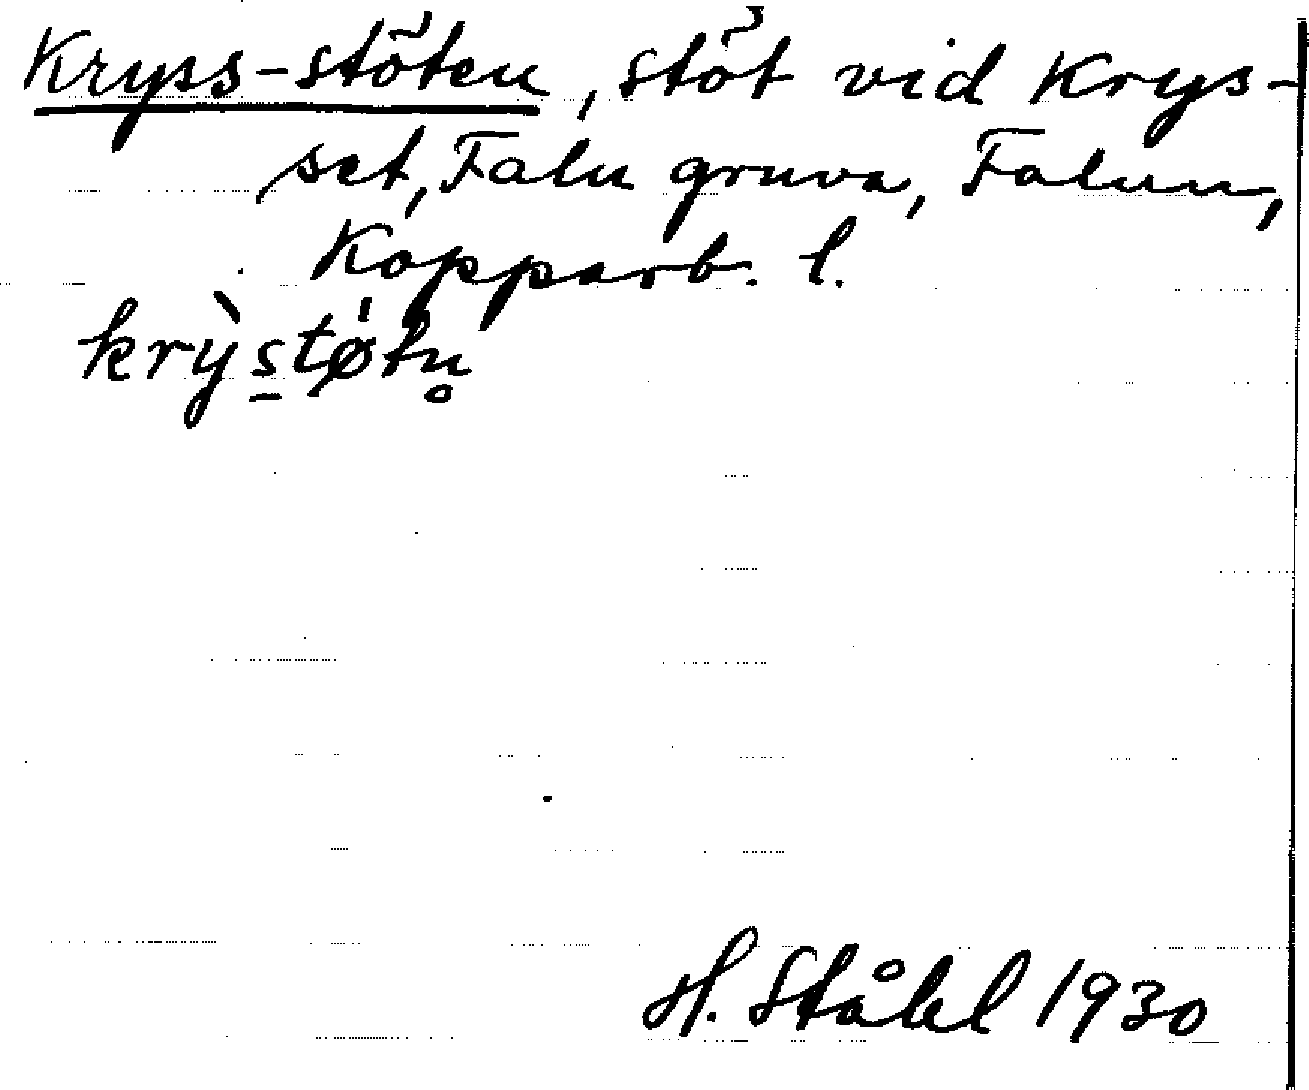 Kryss-stöten, stöt vid Krys-
set, Falu gruva, Falun,
Kopparb. l.
krỳs̲tǿtn̥
H. Ståhl 1930